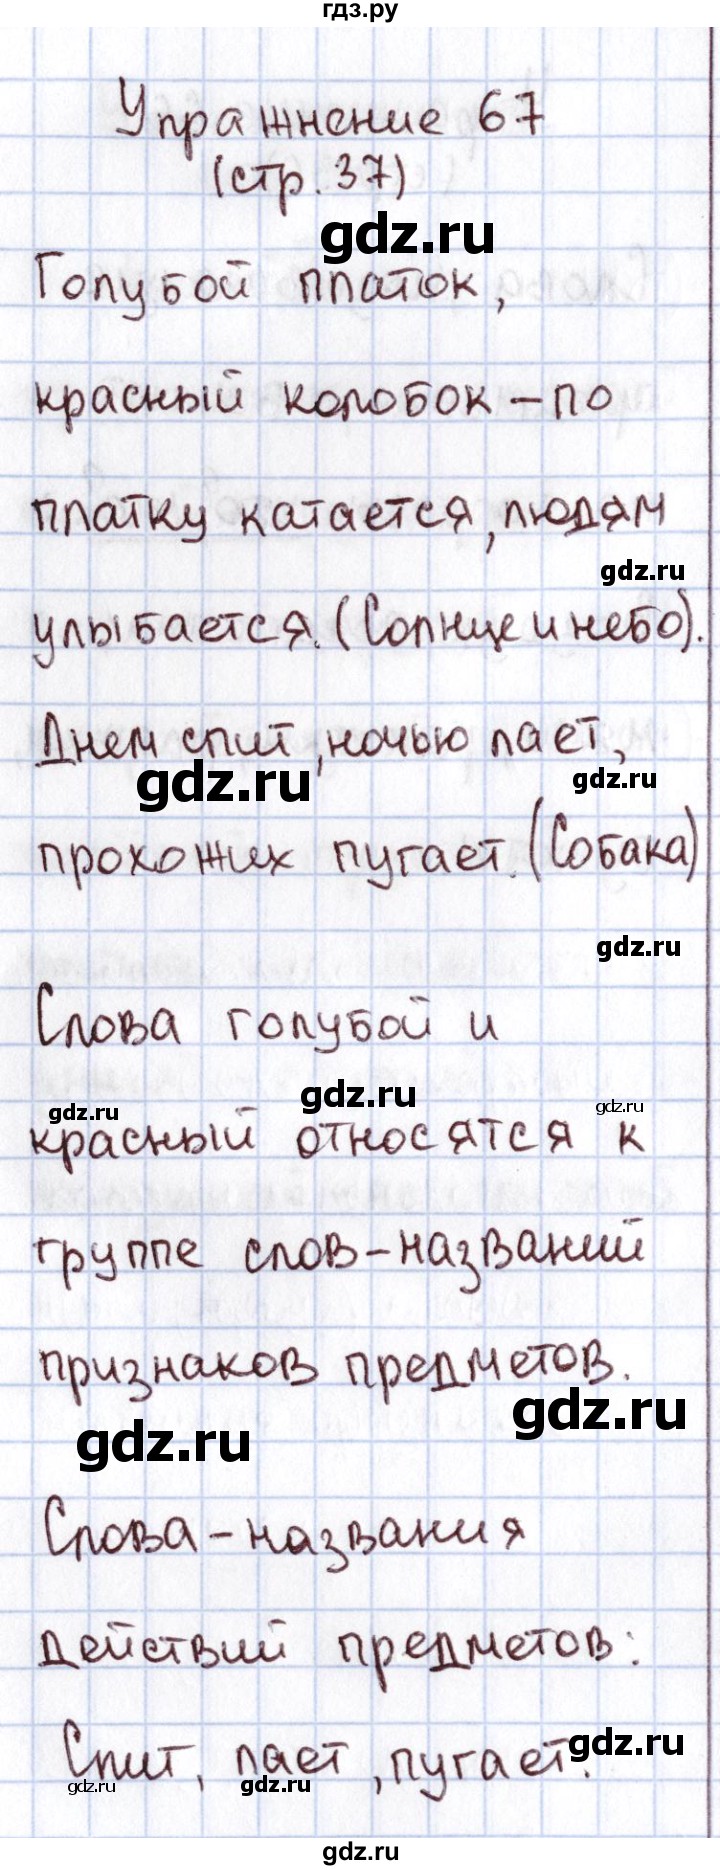 гдз.ру
Упражнение 67
(стр. 37)
gdz.ru
Голубой платок,
красный колобок – по
платку катается, людям
gdz.ru
улыбается. (Солнце и небо).
Днем спит, ночью лает,
gdz.ru
gdz.ru
прохожих пугает. (Собака)
gdz.ru
Слова голубой и
gdz.ru
gdz.ru
gdz.ru
красный относятся к
группе слов-названий
признаков предметов.
gdz.ru
gdz.ru
Слова-названия
действий предметов:
Спит, лает, пугает.
gdz.ru
gdz.ru
gdz.ru
gdz.ru